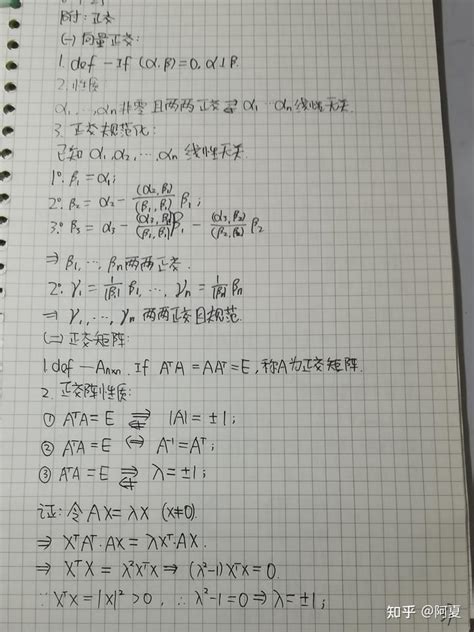 附:正交
(一) 向量正交:
1. def — If (α,β)=0, α⊥β.
2. 性质
α₁,…,αn 非零且两两正交 ⇒ α₁…αn 线性无关.
3. 正交规范化:
已知 α₁,α₂,…,αn 线性无关.
1°. β₁=α₁;
2°. β₂ = α₂ - (α₂,β₁)/(β₁,β₁) β₁;
3°. β₃ = α₃ - (α₃,β₁)/(β₁,β₁) β₁ - (α₃,β₂)/(β₂,β₂) β₂
⇒ β₁,…,βn 两两正交.
2°. γ₁ = 1/|β₁| β₁,…, γn = 1/|βn| βn
⇒ γ₁,…,γn 两两正交且规范.
(二) 正交矩阵:
1. def — An×n. If AᵀA = AAᵀ = E, 称A为正交矩阵.
2. 正交阵性质:
① AᵀA = E ⇄ |A| = ±1;
② AᵀA = E ⇔ A⁻¹ = Aᵀ;
③ AᵀA = E ⇄ λ = ±1;
证: 令 AX = λX (X≠0)
⇒ XᵀAᵀ·AX = λXᵀ·AX.
⇒ XᵀX = λ²XᵀX ⇒ (λ²-1)XᵀX = 0.
∵ XᵀX = |X|² > 0, ∴ λ²-1=0 ⇒ λ = ±1;
知乎 @阿夏